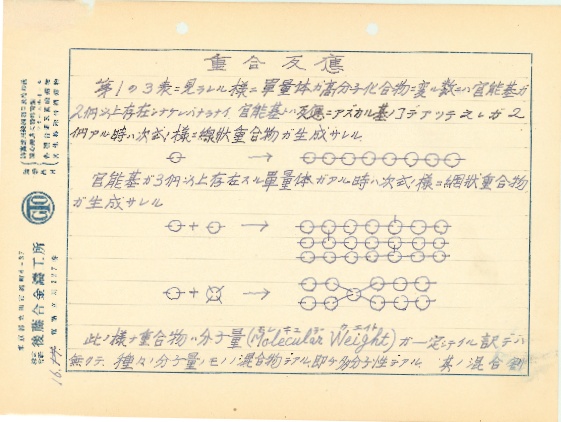 重合反應
第1の3表ニ見ラレル様ニ單量体ガ高分子化合物ニ変ル爲ニハ官能基ガ
2個以上存在シナケレバナラナイ 官能基トハ反應ニアズカル基ノコデアツテ之レガ2
個アル時ハ次式ノ様ニ線狀重合物ガ生成サレル
官能基ガ3個以上存在スル單量体ガアル時ハ次式ノ様ニ網狀重合物
ガ生成サレル
此ノ様ナ重合物ハ分子量(Molecular Weight)ガ一定シテイル訳デハ
無クテ、種々ノ分子量ノモノノ混合物デアル即チ多分子性デアル 其ノ混合割
後藤合金鑄工所